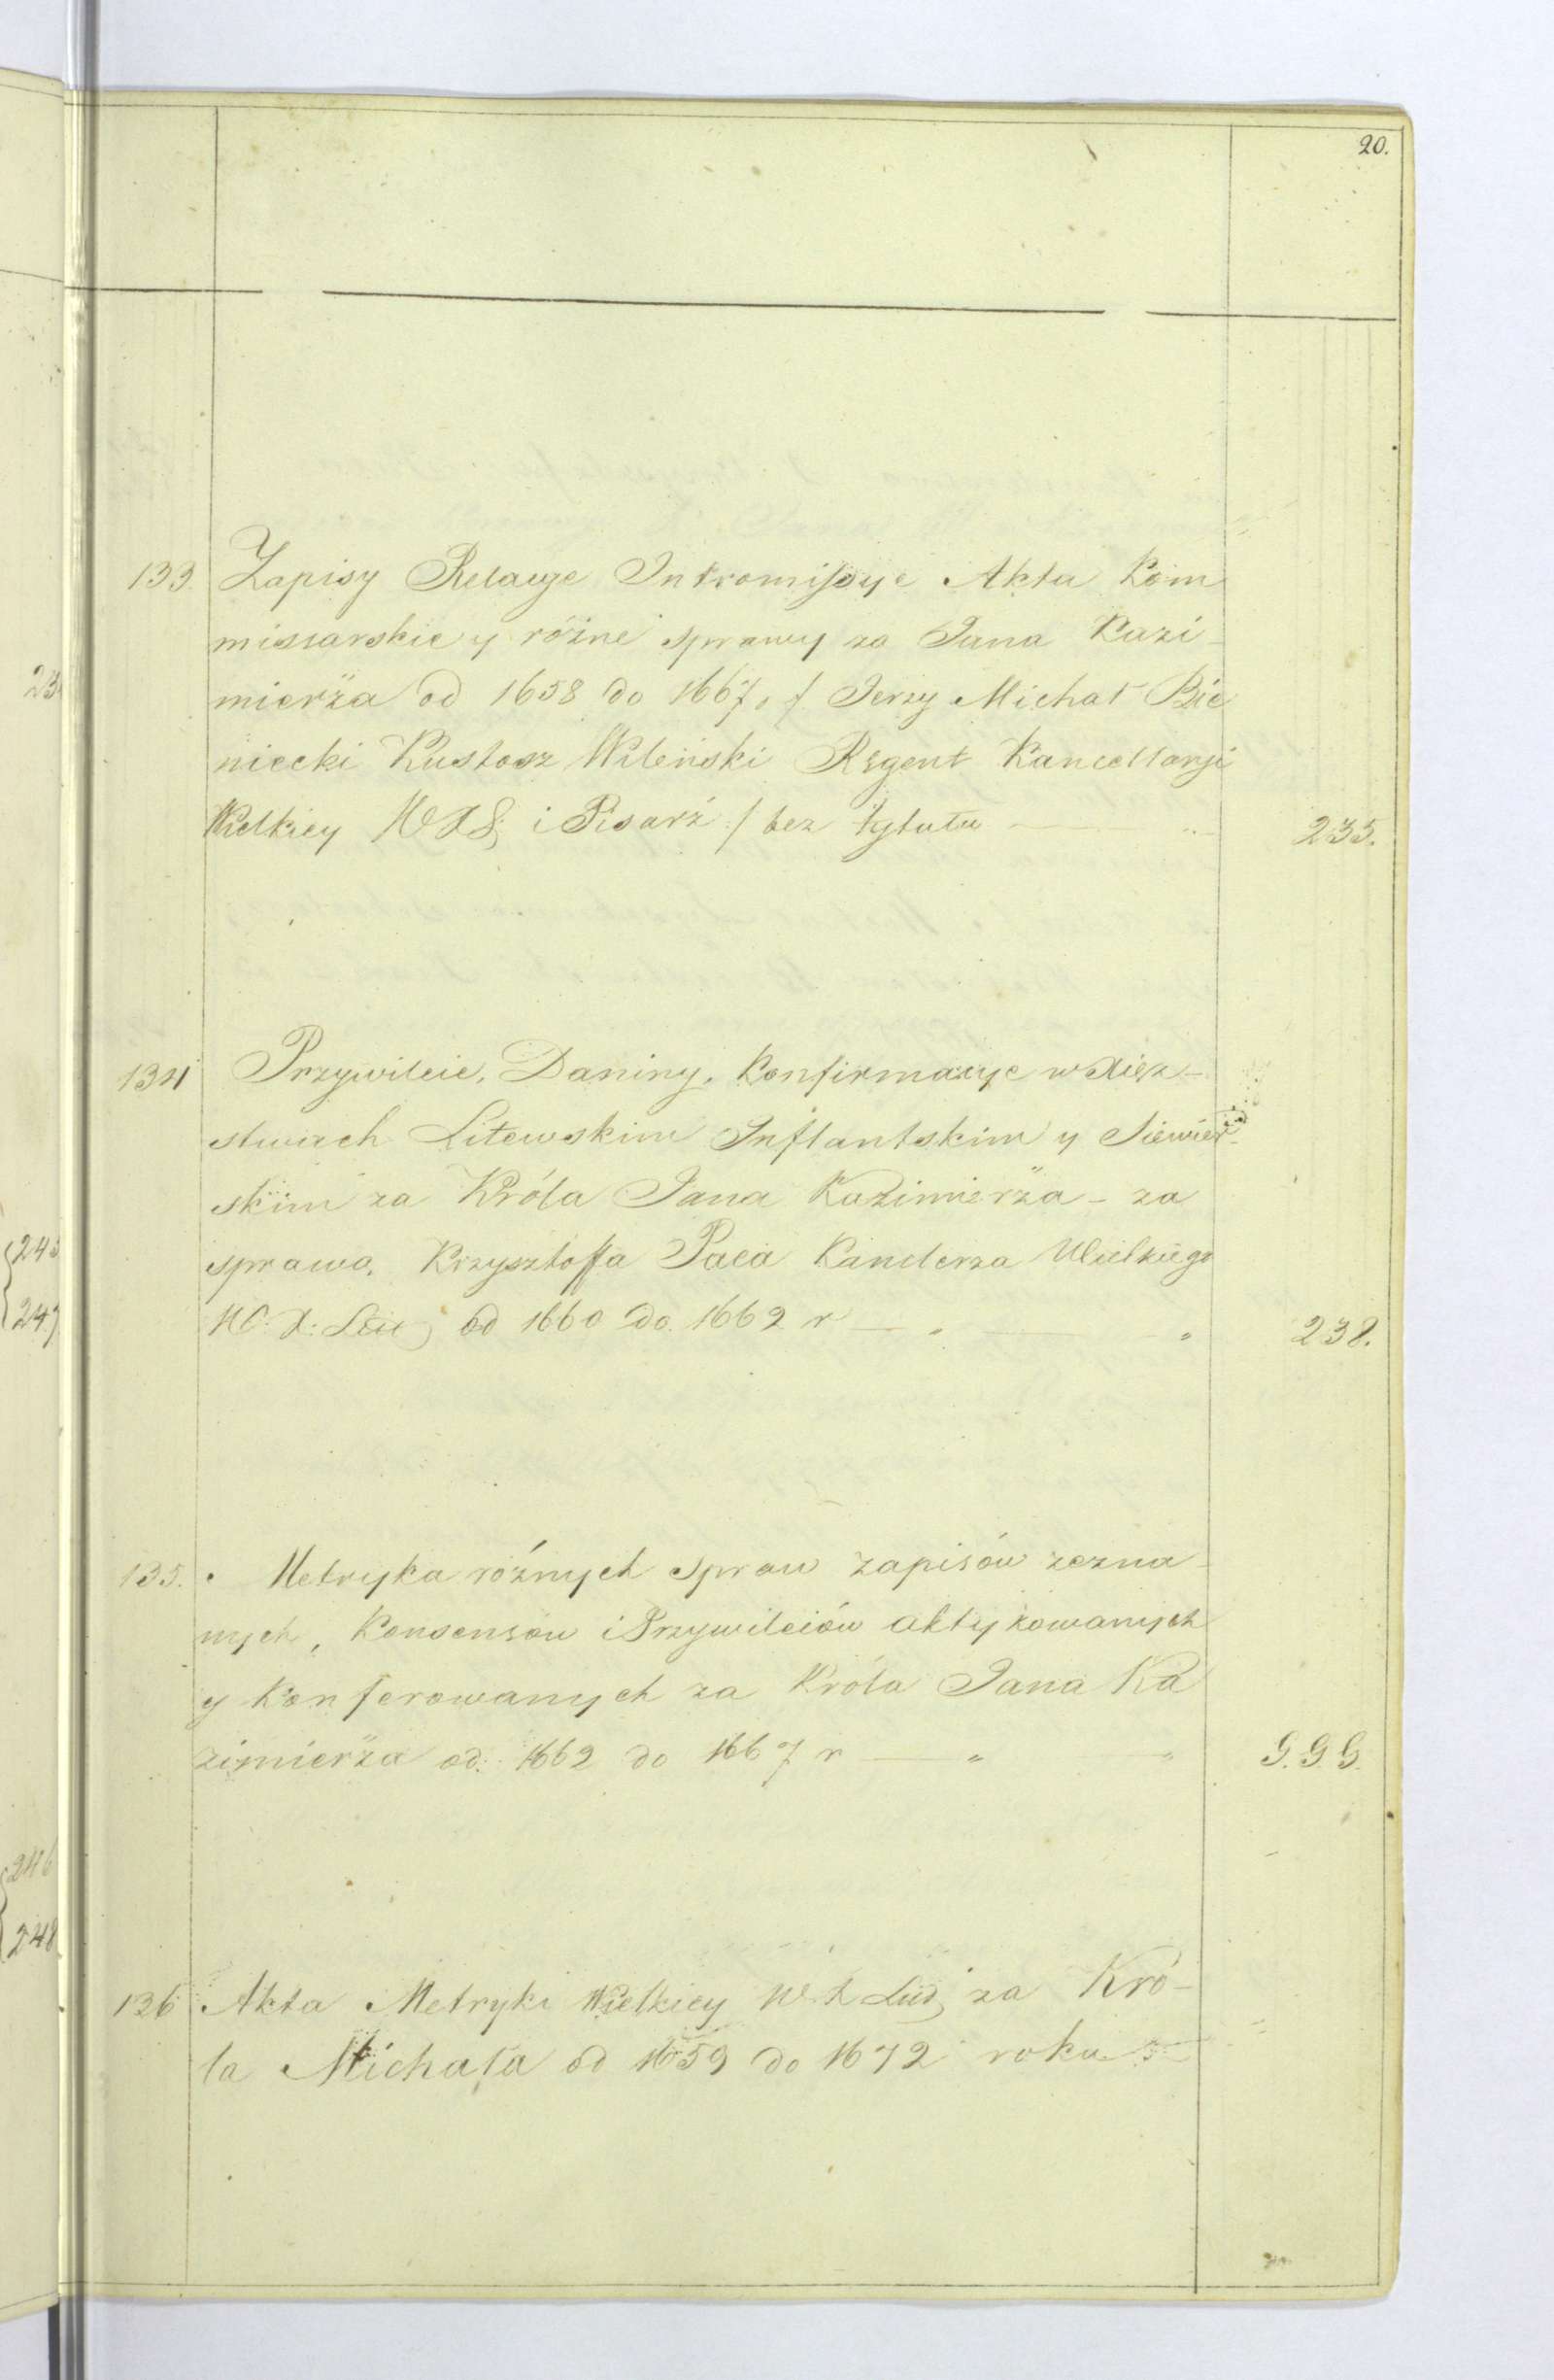 20.
133. Zapisy Relacye Intromissye Akta Kom
missarskie y różne sprawy za Jana Kazi-
mierza od 1658 do 1667, / Jerzy Michał Bie
niecki Kustosz Wileński Regent Kancellaryi
Wielkiey WXL i Pisarż / bez tytułu 235.
134 Przywileie, Daniny, Konfirmacye w Xięz-
stwach Litewskim Inflantskim y Siewier-
skim za Króla Jana Kazimierza - za
sprawą Krzysztoffa Paca Kanclerza Wielkiego
W. X. Litt od 1660 do 1662 r 238.
135. Metryka różnych spraw zapisów zezna-
nych, Konsensow i Przywileiów aktykowanych
y konferowanych za Króla Jana Ka
zimierza od 1662 do 1667 r G.G.G.
136 Akta Metryki Wielkiey W. X za Kró-
la Michała od 1659 do 1672 roku